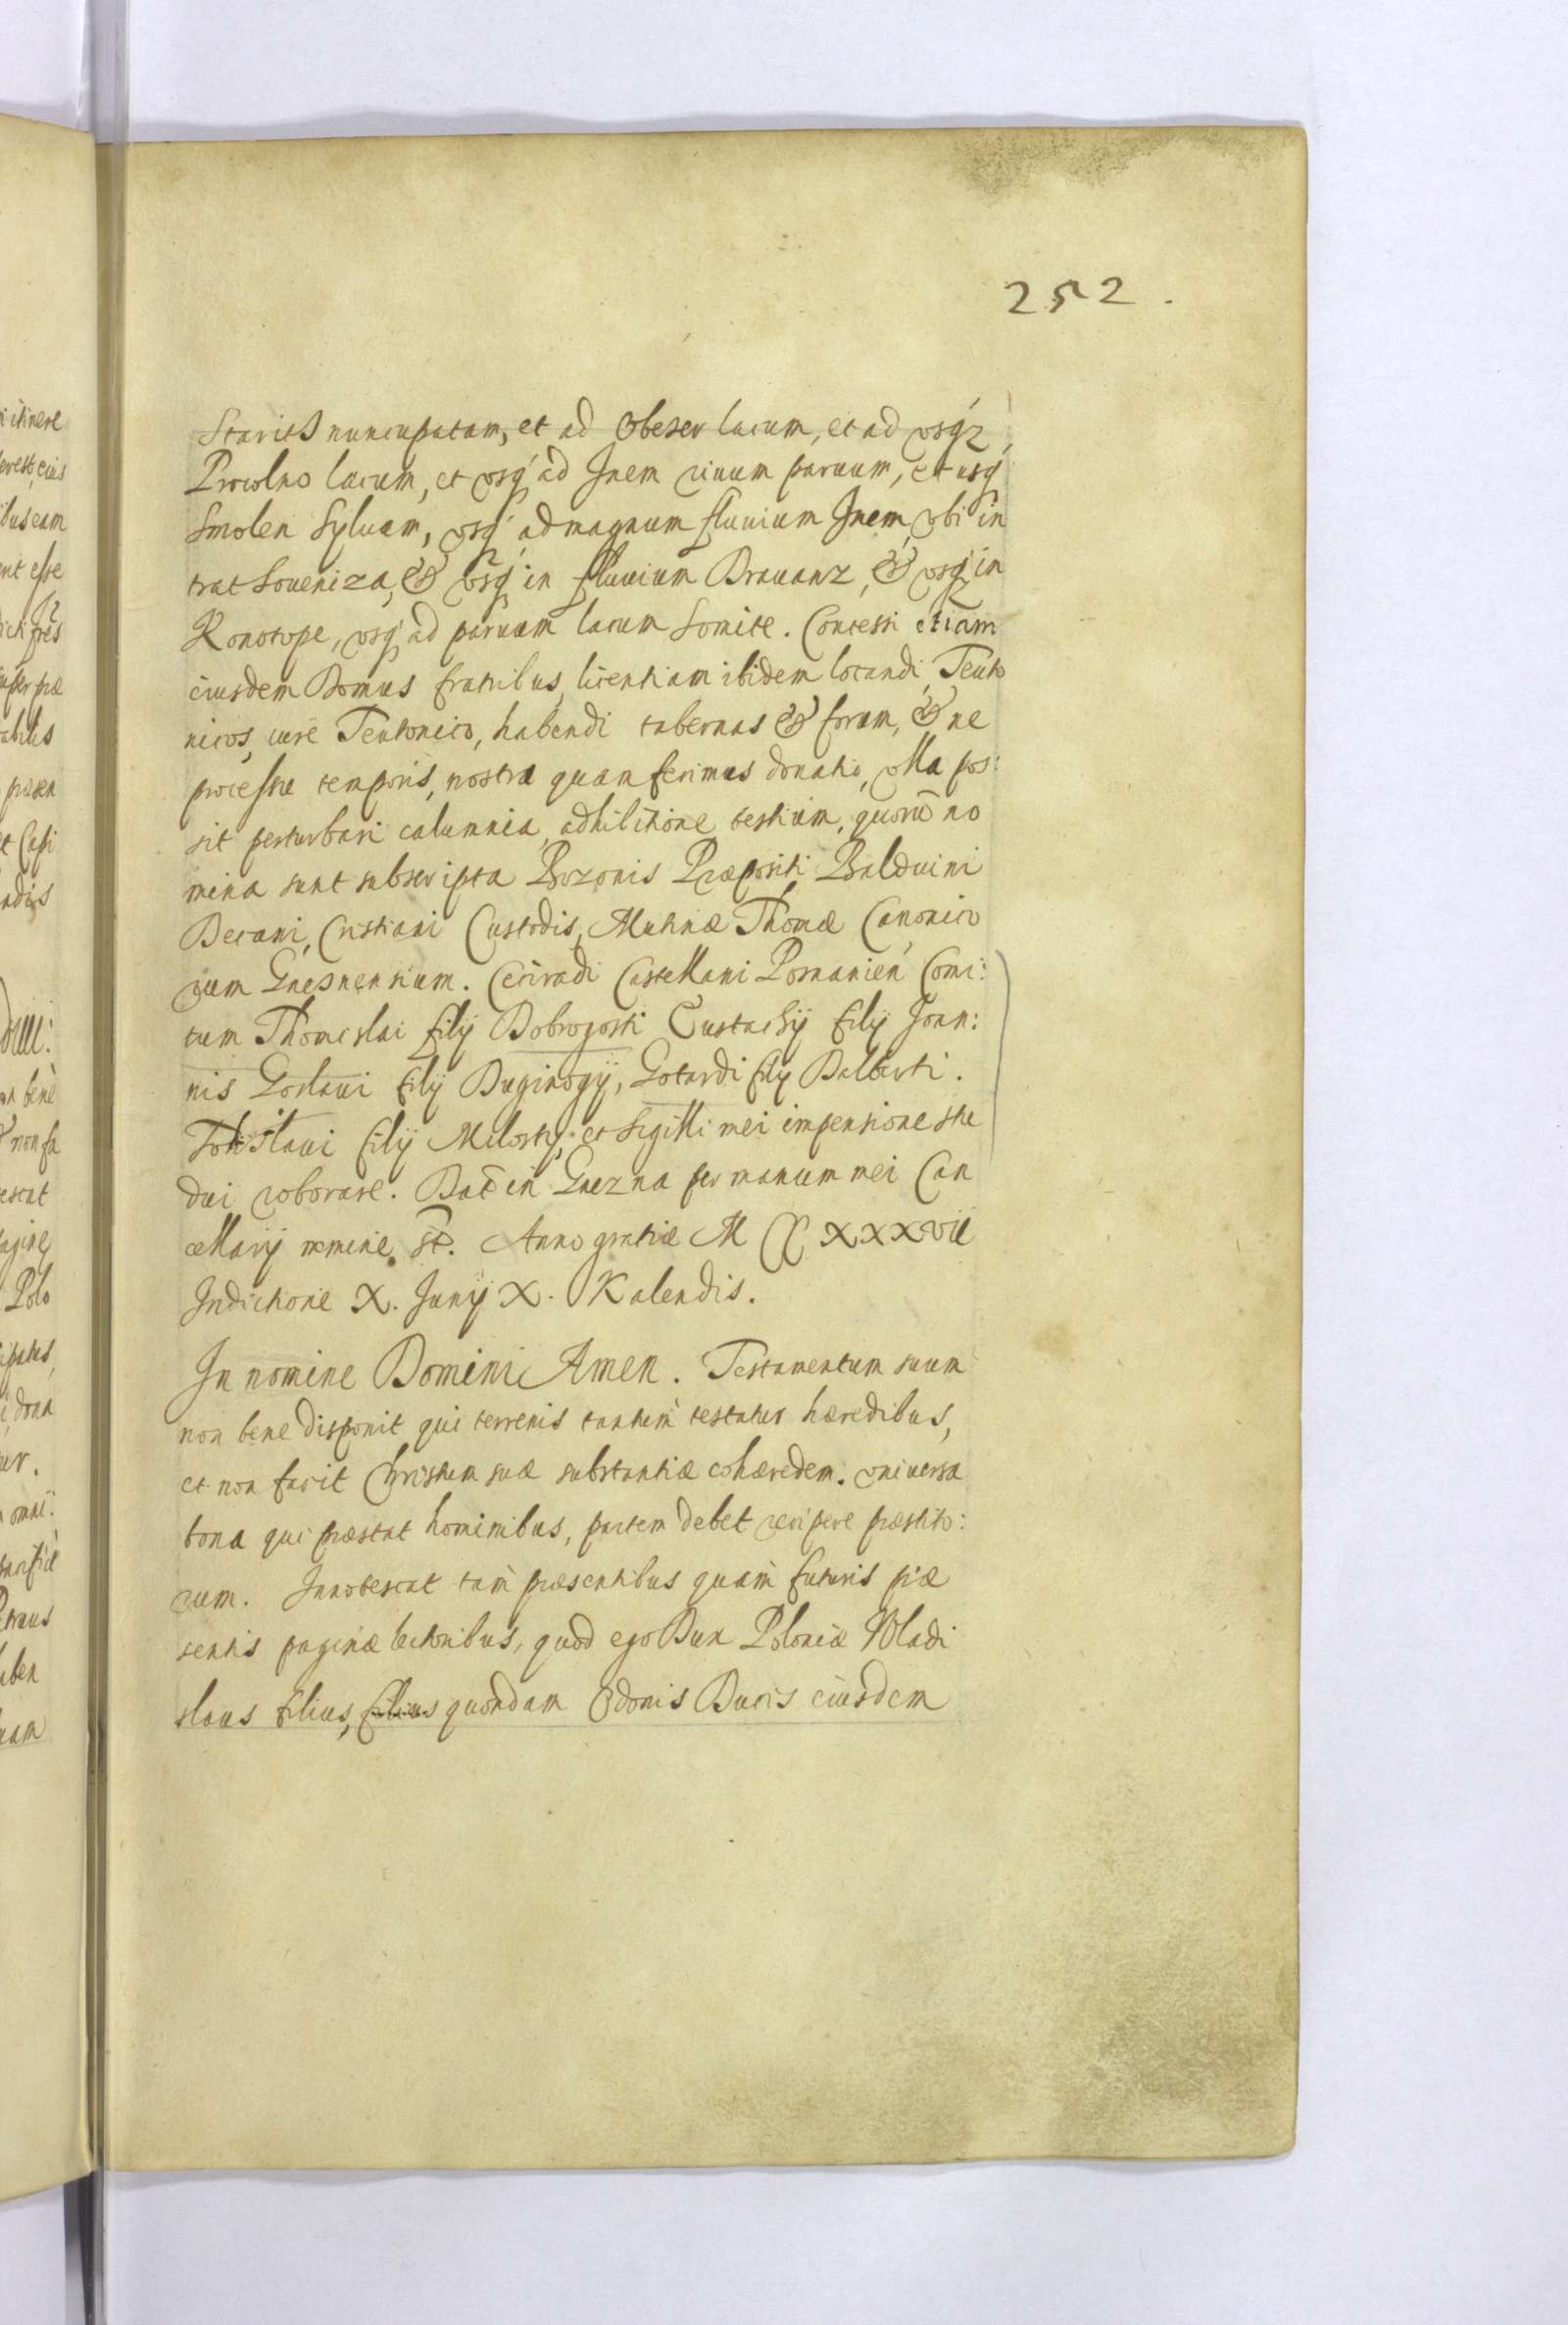 252.
Starits nuncupatam, et ad Obeser lacum, et ad vsq́z
Procolno lacum, et vsq́ ad Jnem riuum paruum, et usq́
Smolen Syluam, vsq́ ad magnum fluuium Jnem, vbi in
trat Soueniza, & vsq́ in fluuium Dravanz, & vsq́z in
Konotope, vsq́ ad paruum lacum Somite. Concessi etiam
eiusdem Domus fratribus, licentiam ibidem locandi Teuto
nicos, iure Teutonico, habendi tabernas & forum, & ne
processu temporis, nostra quam fecimus donatio, vlla pos:
sit perturbari calumnia, adhibitione testium, quorū no
mina sunt subscripta Bozonis Præpositi Balduini
Decani, Cristiani Custodis, Mutinæ Thomæ Canonico
rum Gnesnensium. Ceciradi Castellani Posnanień Comi:
tum Thomislai filij Dobrogosti Eustachij filij Joan:
nis Goslaui filij Duginogij, Gotardi filij Dalberti.
Tohislaui filij Milosti, et Sigilli mei impensione stu
dui roborare. Dat̄ in Gnezna per manum mei Can
cellarij nomine. St̄. Anno gratiæ M CC XXXVII
Indictione X. Junij X. Kalendis.
In nomine Domini Amen. Testamentum suum
non bene disponit qui terrenis tantum testatur hæredibus,
et non facit Christum suæ substantiæ cohæredem. vniuersa
bona qui præstat hominibus, partem debet recipere præstito:
rum. Innotescat tam præsentibus quam futuris præ
sentis paginæ lectoribus, quod ego Dux Poloniæ Wladi
slaus filius, filius quondam Odonis Ducis eiusdem